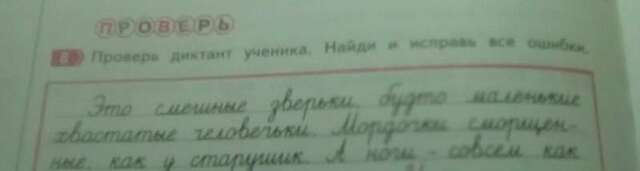 ПРОВЕРЬ
8 Проверь диктант ученика. Найди и исправь все ошибки.
Это смешные зверьки, будто маленькие
хвастатые человечьки. Мордочки сморщен-
ные, как у старушик. А ноги - совсем как